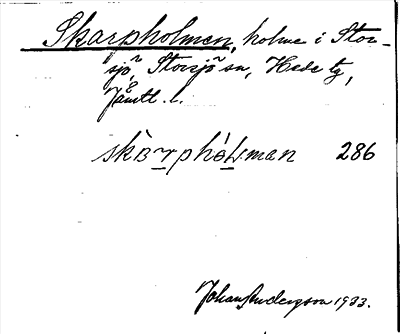 Skarpholmen, holme i Stor-
sjö, Storsjö sn, Hede tg,
Jämtl. l.
286
Johan Anderson 1933.